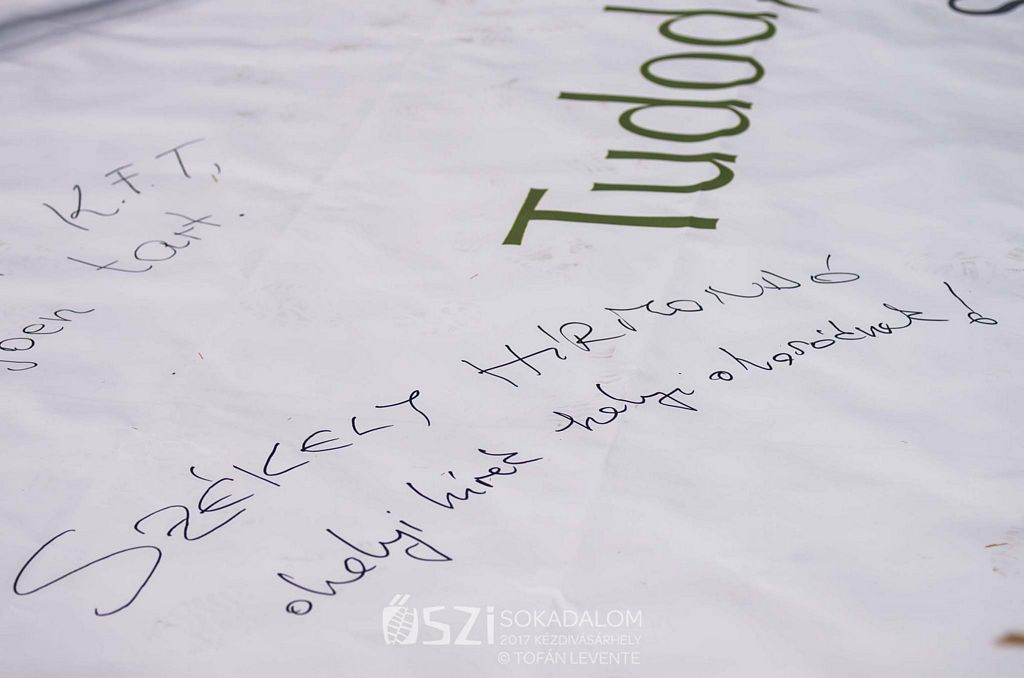 Tudod,
K.F.T.,
ben tart.
SZÉKELY HÍRMONDÓ
helyi hírek helyi olvasóknak!
ŐSZi SOKADALOM
2017 KÉZDIVÁSÁRHELY
© TOFÁN LEVENTE